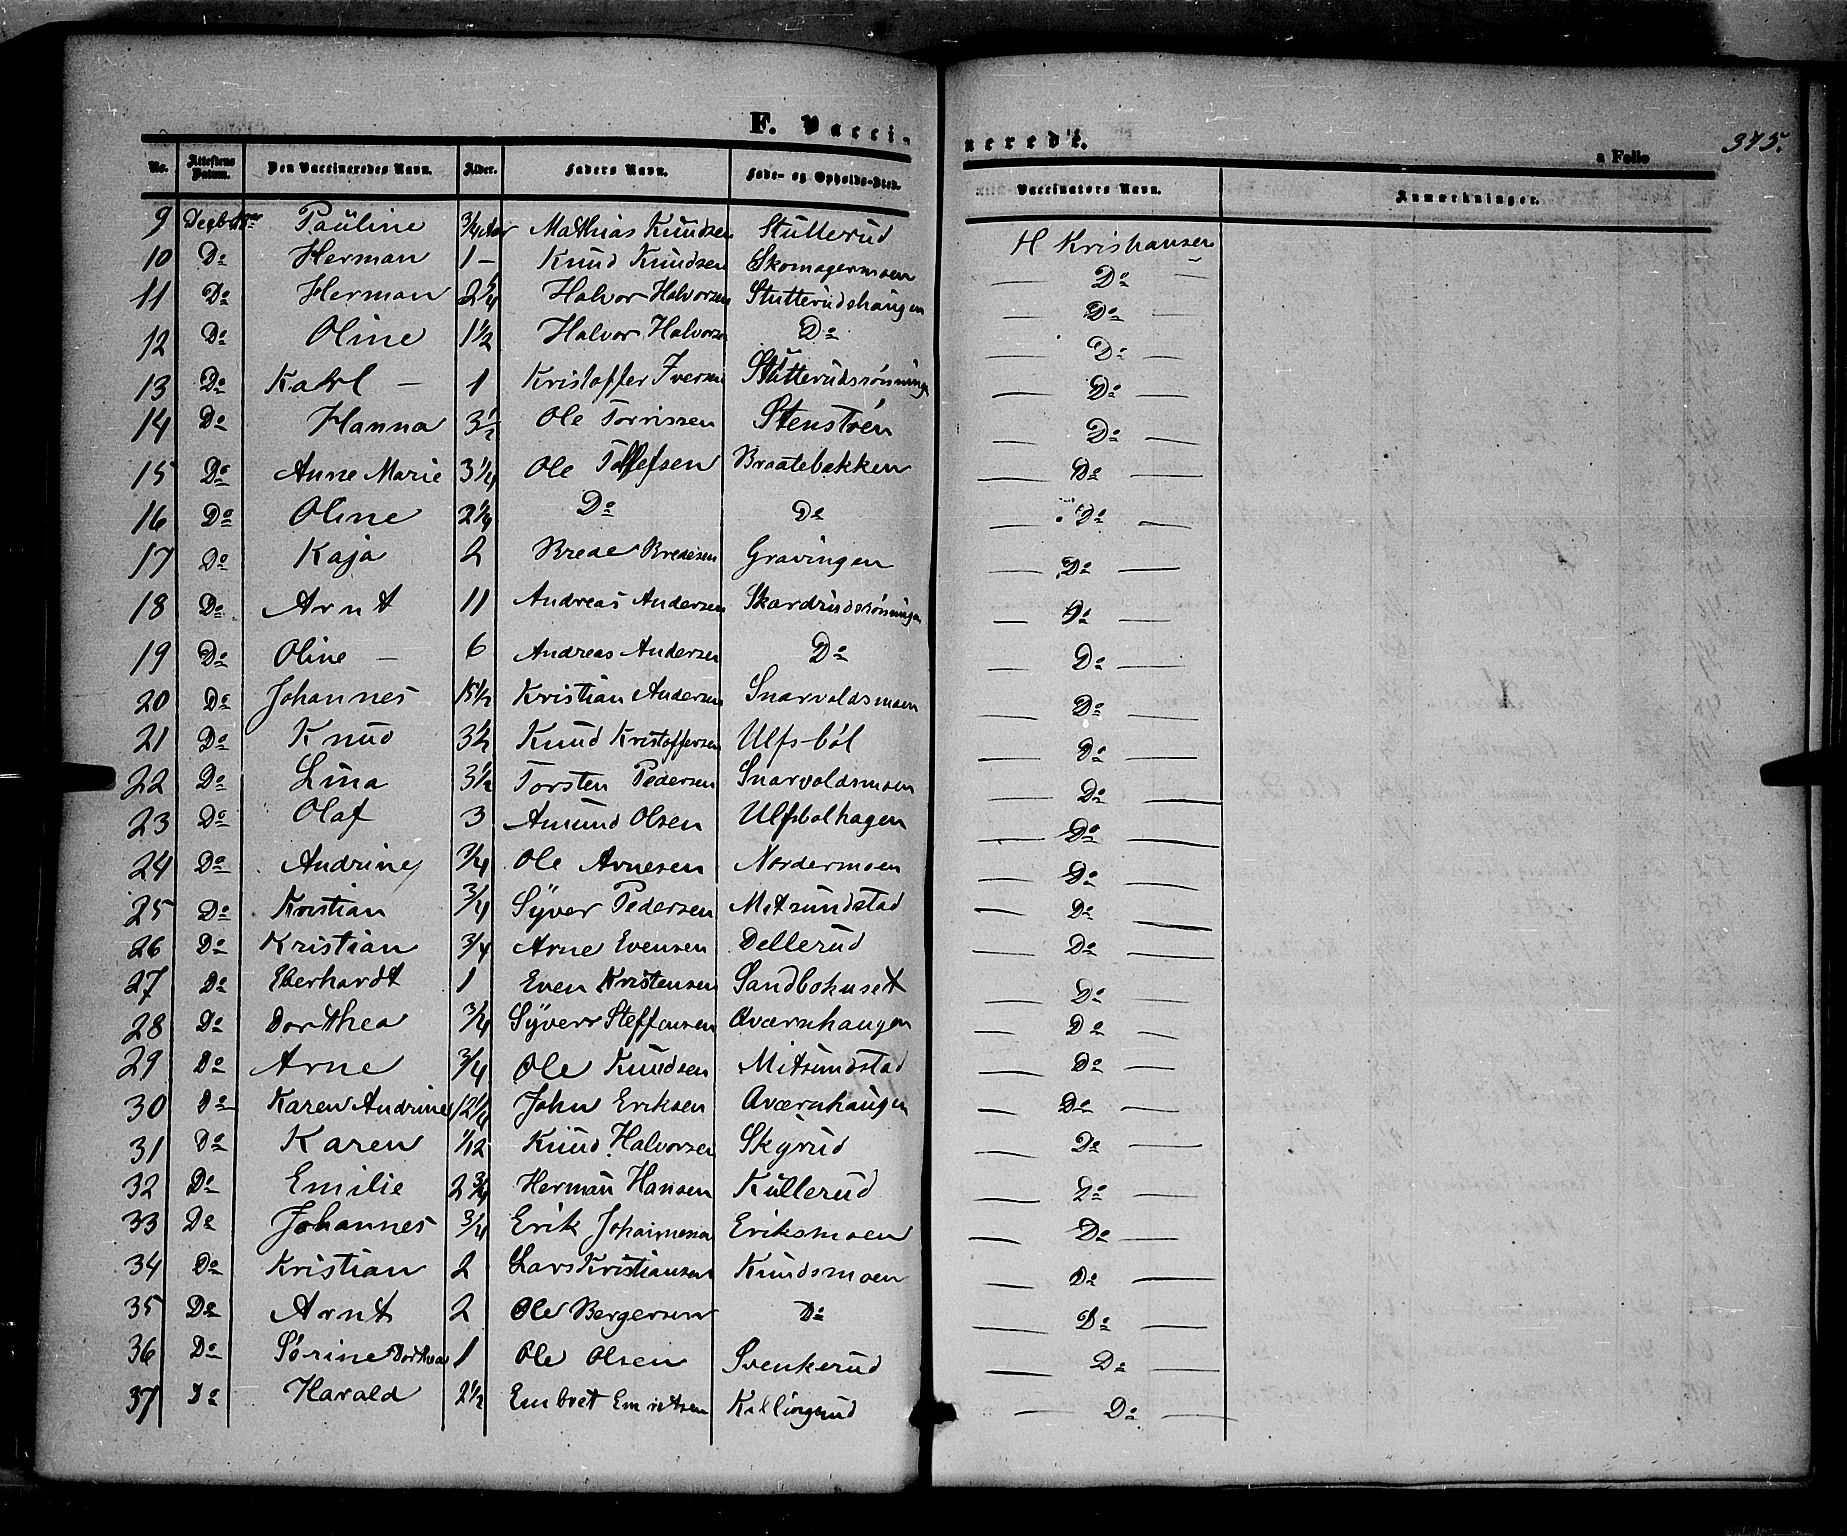 F. Vaccineredt.
a Folio 375.
No. Attestens Datum. Den Vaccineredes Navn. Alder. Faders Navn. Føde- og Opholds-Sted. Vaccinators Navn. Anmærkninger.
9 Pauline 3/4 Aar Mathias Knudsen Stutterud H Kristiansen
10 Do Herman 1 - Knud Knudsen Skomagermoen — Do —
11 Do Herman 2 1/4 Halvor Halvorsen Stutterudshaugen — Do —
12 Do Oline 1 1/2 Halvor Halvorsen Do — Do —
13 Do Karl — 1 Kristoffer Iversen Stutterudsrønningen — Do —
14 Do Hanna 3 1/2 Ole Torrissen Stenstøen — Do —
15 Do Anne Marie 3 1/4 Ole Tollefsen Braatebakken — Do —
16 Do Oline 2 1/4 Do Do — Do —
17 Do Kaja 2 Brede Bredesen Gravingen — Do —
18 Do Arnt 11 Andreas Andersen Skardrudsrønningen — Do —
19 Do Oline — 6 Andreas Andersen Do — Do —
20 Do Johannes Kristian Andersen Snarvoldsmoen — Do —
21 Do Knud 3 1/2 Knud Kristoffersen Ulfsbøl — Do —
22 Do Lina 3 1/2 Torsten Pedersen Snarvoldsmoen — Do —
23 Do Olaf 3 Amund Olsen Ulfsbolhagen — Do —
24 Do Andrine 3/4 Ole Arnesen Nordermoen — Do —
25 Do Kristian 3/4 Syver Pedersen Mitsundstad — Do —
26 Do Kristian 3/4 Arne Evensen Dellerud — Do —
27 Do Eberhardt 1 Even Kristensen Sandbohuset — Do —
28 Do Dorthea 3/4 Syverr Steffensen Aværnhaugen — Do —
29 Do Arne 3/4 Ole Knudsen Mitsundstad — Do —
30 Do Karen Andrine John Eriksen Aværnhaugen — Do —
31 Do Karen 1/12 Knud Halvorsen Skyrud — Do —
32 Do Emilie 2 3/4 Herman Hansen Kullerud — Do —
33 Do Johannes 3/4 Erik Johannesen Eriksmoen — Do —
34 Do Kristian 2 Lars Kristiansen Knudsmoen — Do —
35 Do Arnt 2 Ole Bergersen Do — Do —
36 Do Sørine Dorthea 1 Ole Olsen Svenkerud — Do —
37 Do Harald 2 1/2 Embret Killingrud — Do —